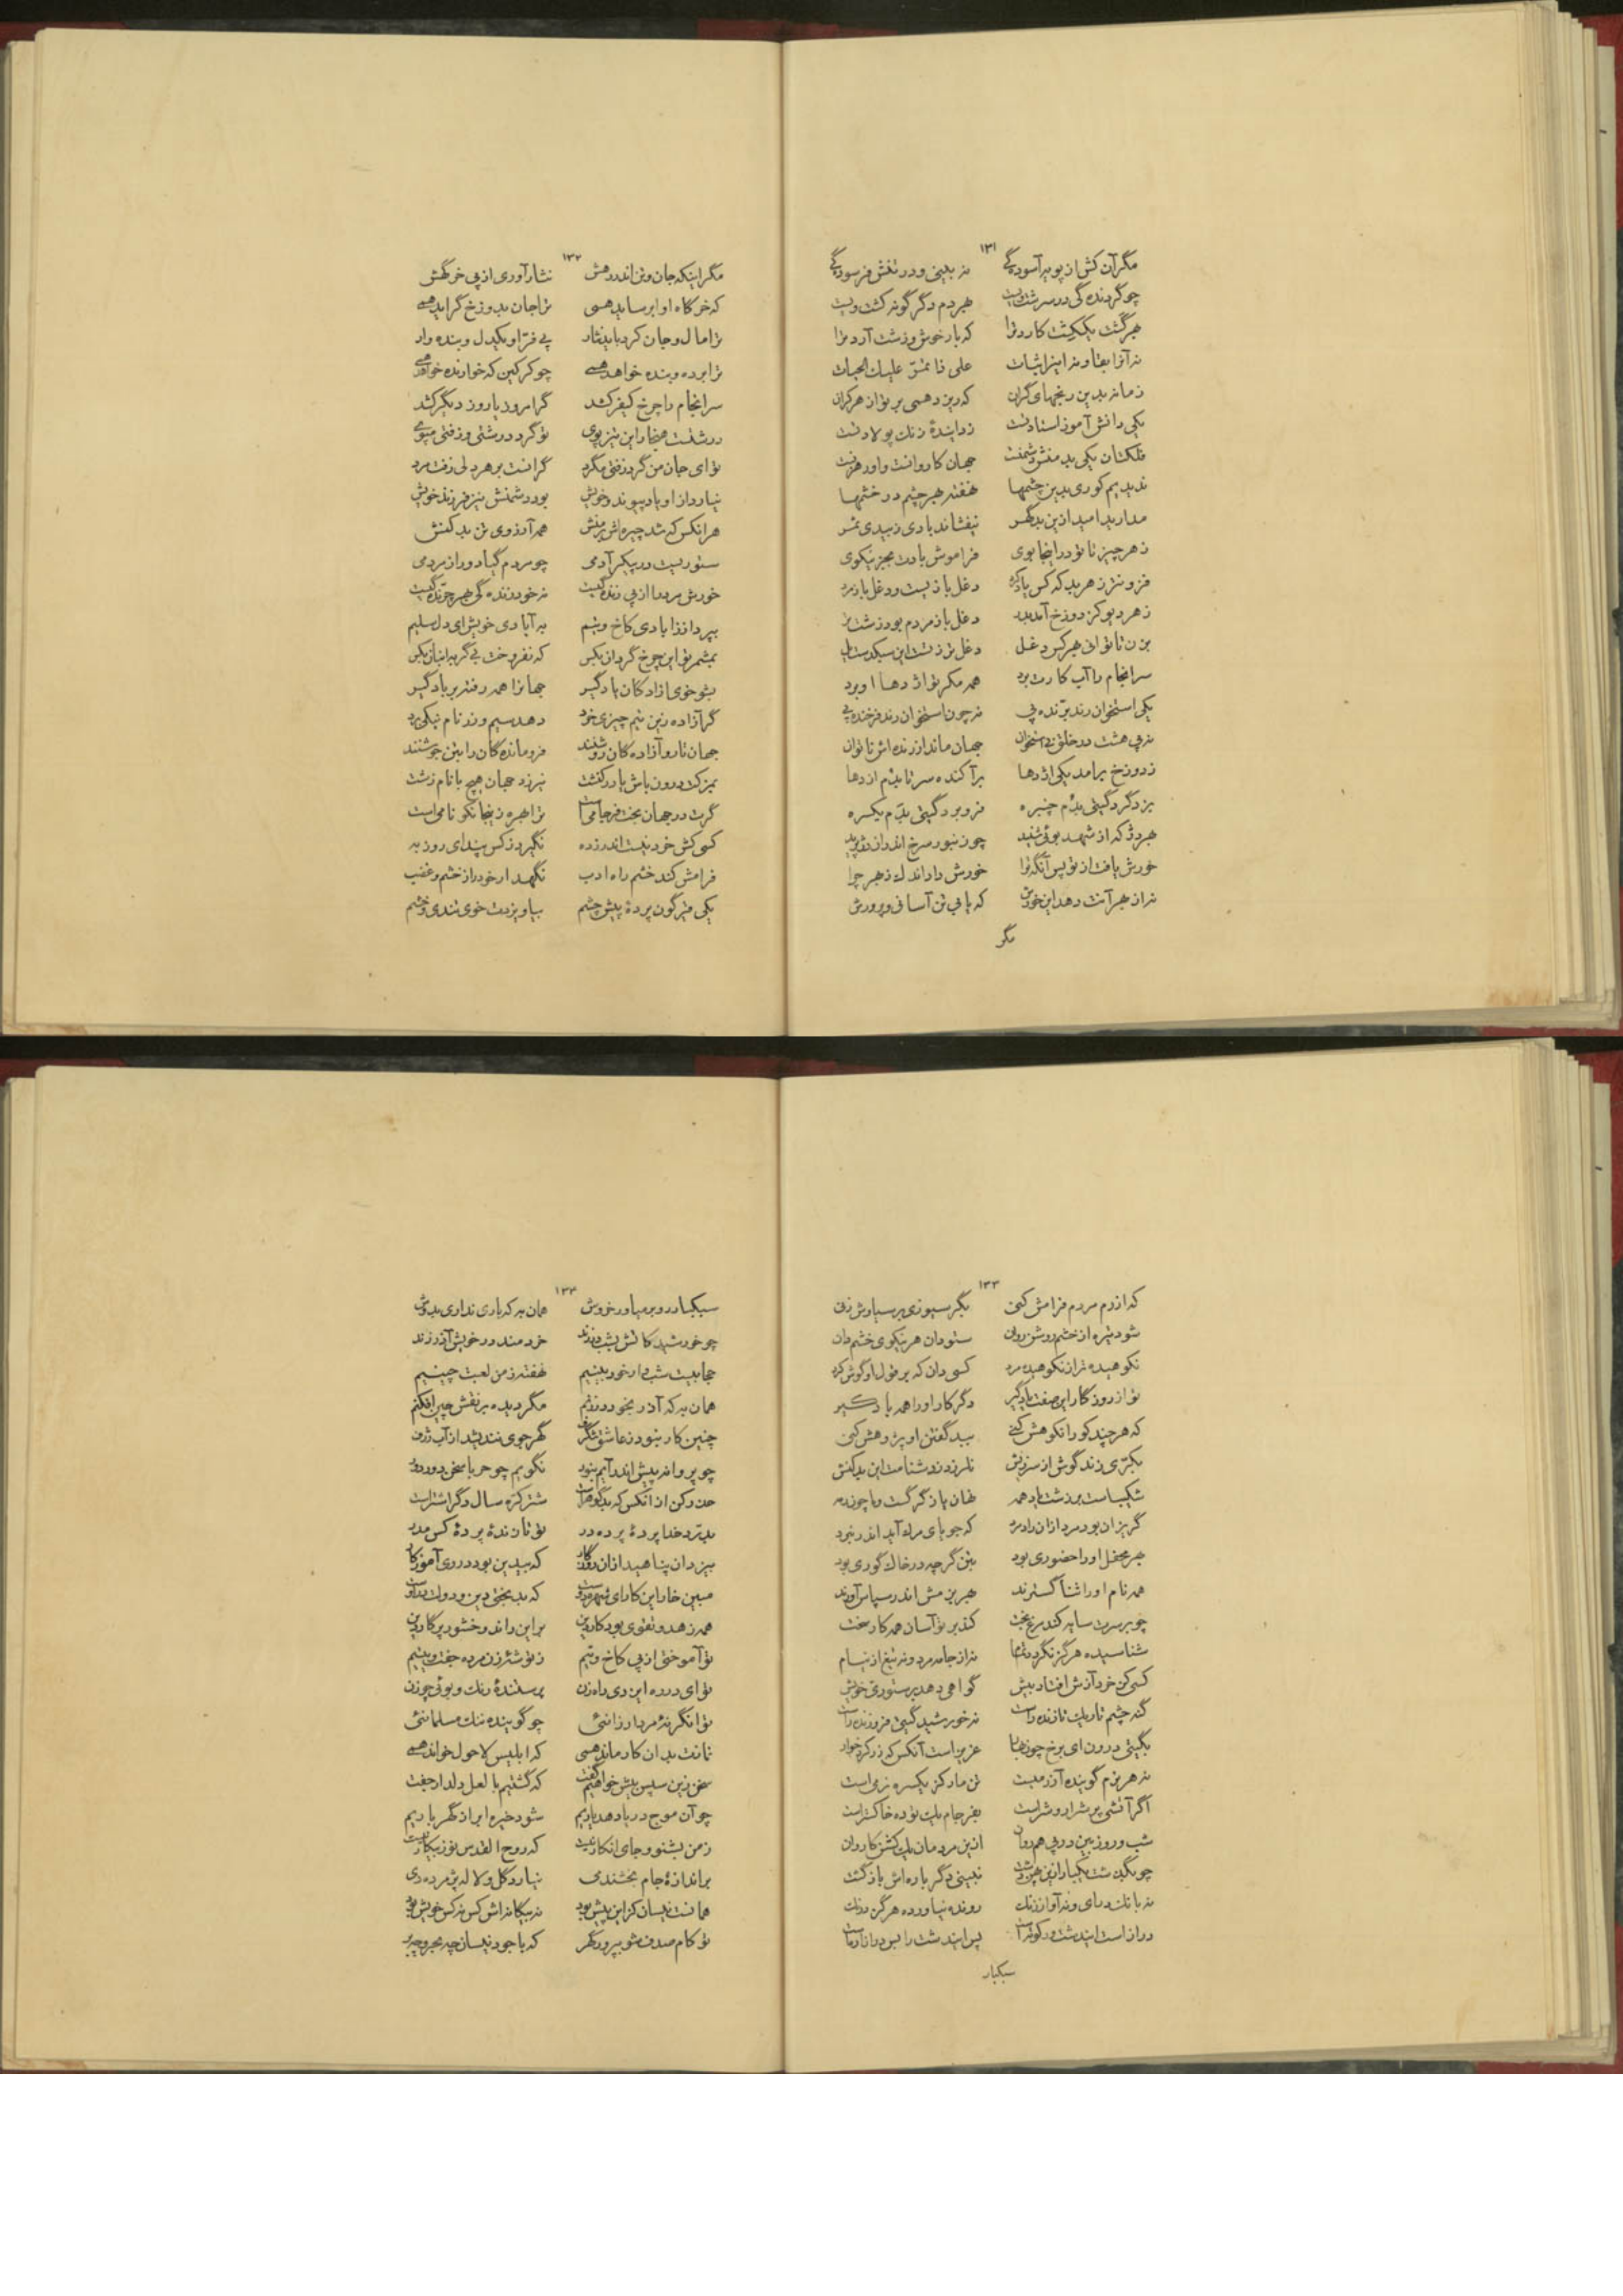 ۱۳۱
مگر آن کش از پویه آسوده‌گی نه بینی و در نغش فرسوده‌گی
چو گردنده گی در سرشت ویست بهر دم دگر گونه کشت ویست
بهر گشت یک کشت کارد ترا که بار خوش و زشت آرد ترا
نه آنرا بقا و نه اینرا ثبات علی ذا تمشّو علیک الحیات
زمانه بدین رنجهای گران که زین دهمی بر تو از هر کران
یکی دانش آموز استاد تست زدایندهٔ زنک پولاد تست
جهان کاروانست و او رهزنست
ندیدیم کوری بدین چشمها نهفته بهر چشم در خشمها
مدارید امید ازین بدگهر نیفشاند بادی ز بیدی ثمر
ز هر چیز تا تو در اینجا بوی فراموش بادت بجز نیکوی
فزونتر ز هر بد که کس یاد کرد دغل باز نیست و دغل باز مرد
ز هر دیو کز دوزخ آمد بدر دغل باز مردم بود زشت تر
بزن تا توانی بهر کس دغل
سرانجام را آب کارت برد همه مکر تو اژدها اوبرد
یکی استخوان رند برّنده پی نه چون استخوان رند فرخنده پی
نه پی هشت در خلق نی استخوان جهان ماند از رنده اش ناتوان
ز دوزخ برامد یکی اژدها برآکنده سر تا بدم از دها
بزد گرد گیتی بدم چنبره فرو برد گیتی بدم یکسره
بهر دژ که از شهد بوئی شنید چو زنبور سرخ اندران دژ پرید
خورش یافت از تو پس آنگه ترا خورش داد اندک ز بهر چرا
نه از بهر آنت دهد این خورش که یابی تن آسانی و پرورش
مگر
۱۳۲
مگر اینکه جان و تن اندر رهش نثار آوری از پی خرگهش
که خرگاه او ابر ساید همی ترا جان بدوزخ گراید همی
ترا مال و جان کرد باید نثار پی فرّ او یکدل و بنده وار
ترا برده و بنده خواهد همی چو کرکین که خوارنده خواهد همی
سرانجام را چرخ کیفر کشد گر امروز یا روز دیگر کشد
درشتست هنجار این تیز پوی تو گرد درشتی و زفتی مپوی
تو ای جان من گرد زفتی مگرد گرانست بر هر دلی زفت مرد
نیارد از او یاد پیوند و خویش بود دشمنش نیز فرزند خویش
هر انکس که شد چیره اش بر منش همه آرزوی تن بد کنش
ستوریست در پیکر آدمی چو مردم گیا دور از مردمی
خورش مرد را از پی زنده گیست نه خود زنده گی بهر چرّنده گیست
بپرداز زابادی کاخ و تیم به آبادی خویش ای دل سلیم
بمشمر تو این چرخ گردان بکس که نفروخت بی گریه انبان بکس
بشو خوی ازاد کان یاد گیر جهانرا همه رفته بر باد گیر
گر آزاده زین نیم چیزی خرد دهد سیم و زر نام نیکی برد
جهان تار و آزاده گان روشنند فرومانده گان را بتن جوشنند
بمزکت درون باش یا در کنشت نیرزد جهان هیچ با نام زشت
گرت در جهان بخت فرجامی است ترا بهره زینجا نکو نامی است
کسی کش خرد نیست اندر زده نگیرد ز کس پند ای روزبه
فرامش کند خشم راه ادب نگهدار خود را ز خشم و غضب
یکی تیره گون پردهٔ پیش چشم بیاویزدت خوی تندی و خشم
۱۳۳
که ازرم مردم فرامش کنی
شود تیره از خشم روشن روان ستودان هر نیکوی خشم دان
نکوهیده تر از نکوهیده مرد کسی دان که بر قول او گوش کرد
تو از روزگار این صفت یاد گیر دگر کار او را همه باد گیر
که هر چند کو را نکوهش کنی ببد گفتن او پژوهش کنی
بکرّی زند گوش از سرزنش نلرزد ز دشنامت این بد کنش
گریزان بود مرد ازان راد مرد که جویای مرد آید اندر نبرد
بهر محفل او را حضوری بود بتن گر چه در خاک گوری بود
همه نام او را ثنا گسترند بهر بزمش اندر سپاس آورند
چو بر سرت سایه کند مرغ بخت کند بر تو آسان همه کار سخت
شناسیده هرگز نگردد نه از جامه مرد و نه تیغ از نیام
کسی کز خر آزش افتاد پیش گواهی دهد بر ستوری خویش
گنه چشم تاریک تازنده راست نه خورشید گیتی فروزنده راست
عزیز است آنکس که زر کرد خوار
اگر آتشی پر شرار و شر است بفرجام یک توده خاکستر است
شب و روز بین در پی هم روان ازین مردمان یک کشن کاروان
چو بگذشت یکبار ازین پهن دشت نبینی دگر باره اش بازگشت
نه بانک درای و نه آواز زنک رونده نیاورده هرگز درنک
سبکبار
۱۳۴
سبکبار رو بر میاور خروش همان به که باری نداری بدوش
چو خورشید کاتش بشب در زند خردمند در خویش آذر زند
حجابیست شب تار خود بینیم نهفته ز من لعبت چینیم
همان به که آذر بخود در زنم مگر دیده بر نقش چین افکنم
چنین کار نبود ز عاشق شگرف گهر جوی نندیشد از آب ژرف
چو پروانه پیش اندر آیم بنور نگویم چو حربا سخن دور دور
حذر کن از آنکس که بدگوهر است شتر کرّه سال دگر اشتر است
بدرّد خدا پردهٔ پرده در تو تا زندهٔ پردهٔ کس مدر
بیزدان پناهید ازان روزگار که بیدین بود در وی آموزگار
همه زهد و تقوی بود کار دین بر این راند وخشور پرگار دین
تو آموختی از پی کاخ و تیم
تو ای درده این دی راه زن پرستندهٔ رنک و بوئی چو زن
توانگر نهٔ مرد ارزانئی چو گوینده ننک مسلمانئی
که ابلیس لاحول خواند همی
سخن زین سپس پیش خواهیم گفت که گشتیم با لعل دلدار جفت
چو آن موج دریا دهد یاریم شود خیره ابر از گهر باریم
ز من بشنو و جای انکار نیست که روح القدس نوز بیکار نیست
بر اندازهٔ جام بخشند می نیارد گل و لاله پژمرده دی
همانست نیسان کز این پیش بود نه بیگانه اش کس نه کس خویش بود
تو کام صدف شو بپرور گهر که با جود نیسان چه بحر و چه بر